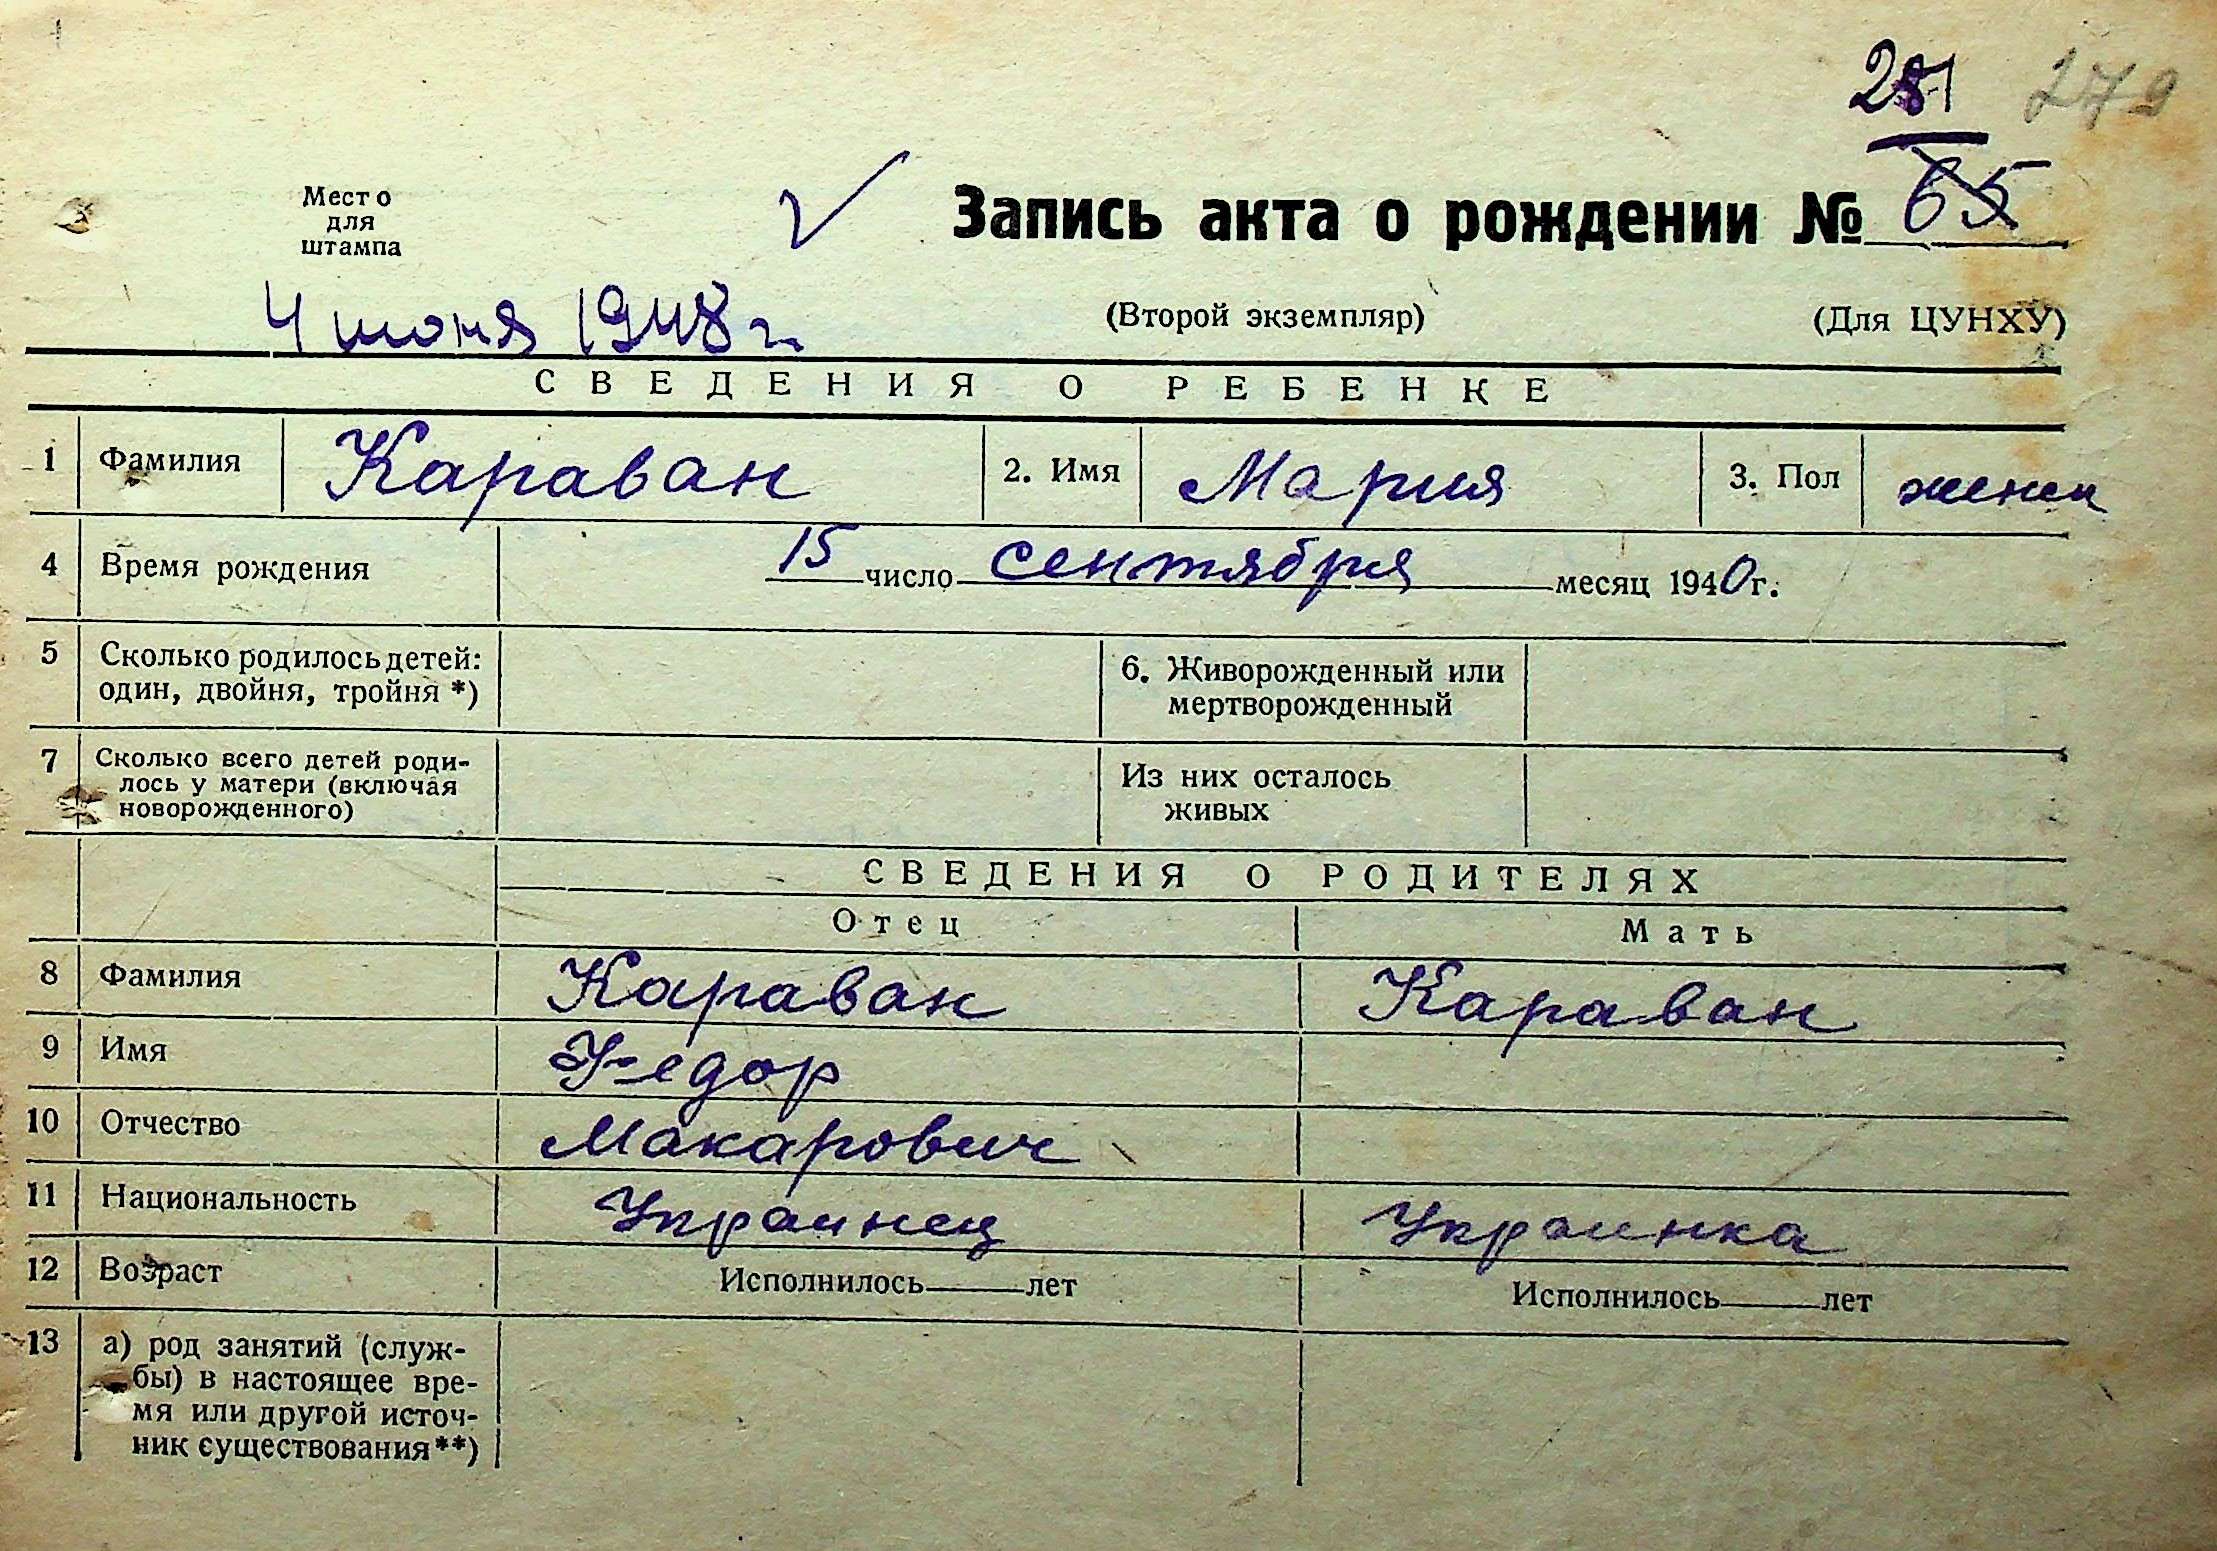 281 279
Место
для
штампа
Запись акта о рождении № 65
4 июня 1948 г.
(Второй экземпляр) (Для ЦУНХУ)
СВЕДЕНИЯ О РЕБЕНКЕ
1 Фамилия Караван 2. Имя Мария 3. Пол женск
4 Время рождения 15 число сентября месяц 1940 г.
5 Сколько родилось детей: 6. Живорожденный или
один, двойня, тройня *) мертворожденный
7 Сколько всего детей роди- Из них осталось
лось у матери (включая живых
новорожденного)
СВЕДЕНИЯ О РОДИТЕЛЯХ
Отец Мать
8 Фамилия Караван Караван
9 Имя Федор
10 Отчество Макарович
11 Национальность Украинец Украинка
12 Возраст Исполнилось лет Исполнилось лет
13 а) род занятий (служ-
бы) в настоящее вре-
мя или другой источ-
ник существования **)